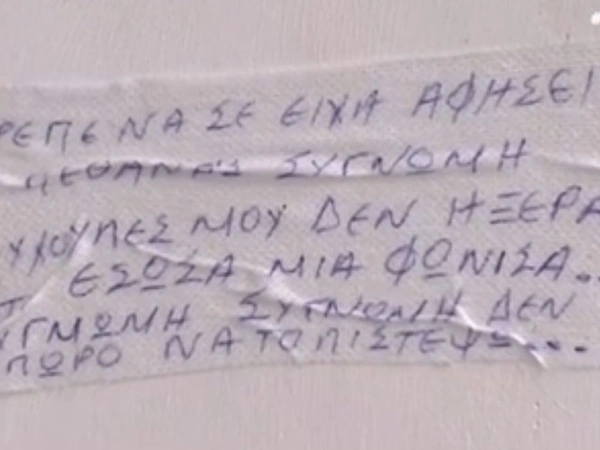 ΡΕΠΕ ΝΑ ΣΕ ΕΙΧΑ ΑΦΗΣΕΙ
ΠΕΘΑΝΑΣ ΣΥΓΝΩΜΗ
ΜΟΥ ΔΕΝ ΗΞΕΡΑ
ΕΣΩΣΑ ΜΙΑ ΦΩΝΙΣΑ..
ΥΓΜΩΜΗ ΣΥΓΝΩΜΗ ΔΕΝ
ΠΩΡΟ ΝΑ ΤΟ ΠΙΣΤΕΨΩ...